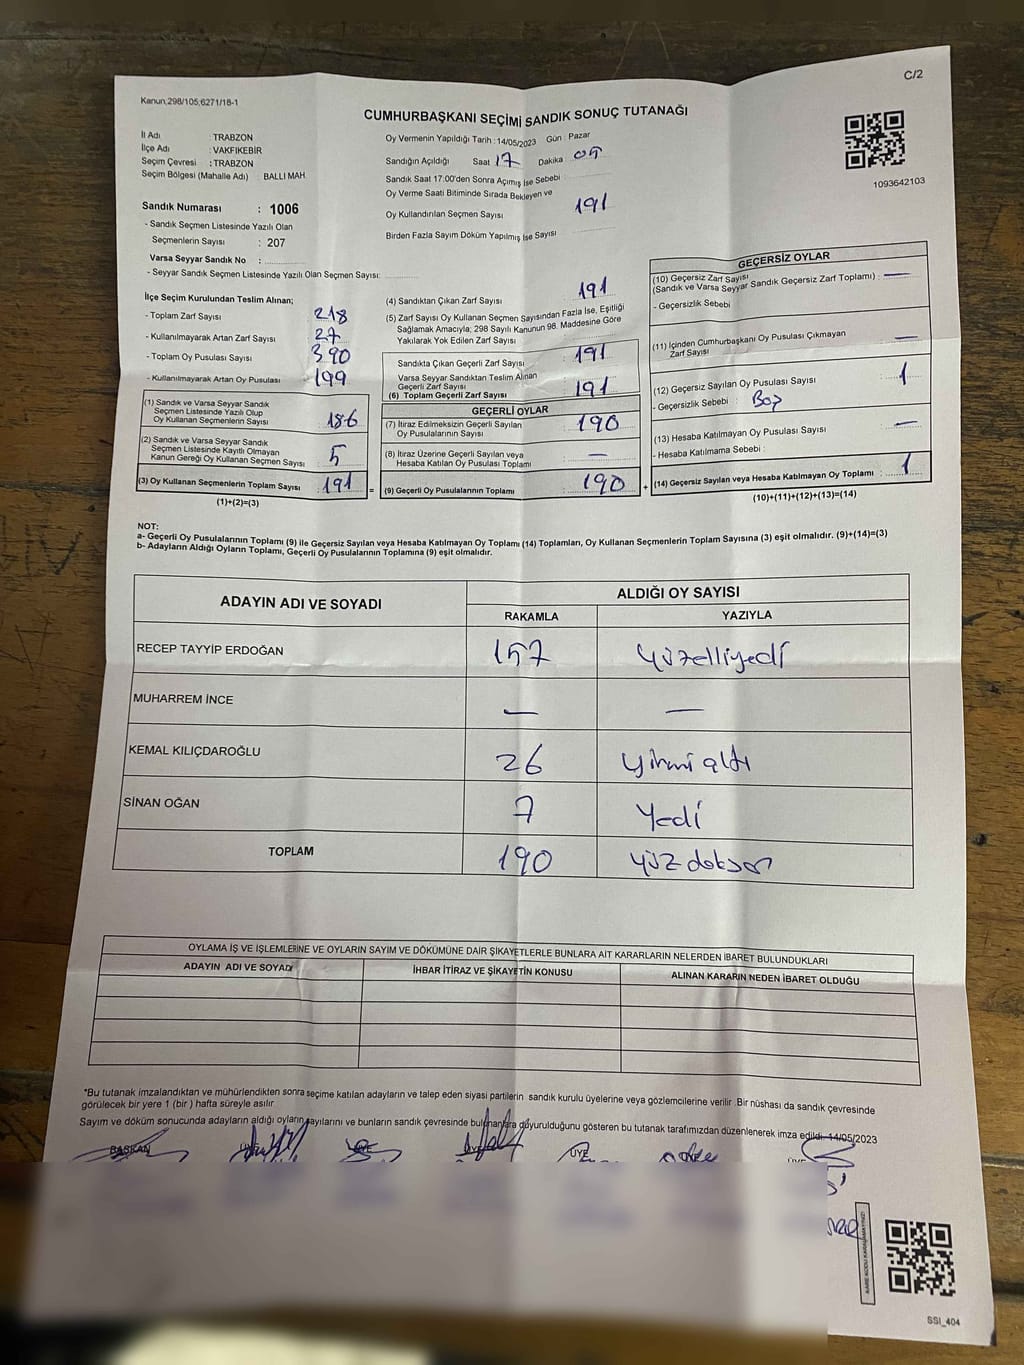 C/2
Kanun,298/105,6271/18-1
CUMHURBAŞKANI SEÇİMİ SANDIK SONUÇ TUTANAĞI
İl Adı : TRABZON
İlçe Adı : VAKFIKEBİR
Seçim Çevresi : TRABZON
Seçim Bölgesi (Mahalle Adı) BALLI MAH.
Oy Vermenin Yapıldığı Tarih : 14/05/2023 Gün : Pazar
Sandığın Açıldığı Saat 17 Dakika 05
Sandık Saat 17:00'den Sonra Açımış İse Sebebi
Oy Verme Saati Bitiminde Sırada Bekleyen ve
Oy Kullandırılan Seçmen Sayısı 191
Birden Fazla Sayım Döküm Yapılmış İse Sayısı
1093642103
Sandık Numarası : 1006
- Sandık Seçmen Listesinde Yazılı Olan
Seçmenlerin Sayısı : 207
Varsa Seyyar Sandık No :
- Seyyar Sandık Seçmen Listesinde Yazılı Olan Seçmen Sayısı:
İlçe Seçim Kurulundan Teslim Alınan;
- Toplam Zarf Sayısı 218
- Kullanılmayarak Artan Zarf Sayısı 27
- Toplam Oy Pusulası Sayısı 390
- Kullanılmayarak Artan Oy Pusulası 199
(1) Sandık ve Varsa Seyyar Sandık
Seçmen Listesinde Yazılı Olup
Oy Kullanan Seçmenlerin Sayısı : 186
(2) Sandık ve Varsa Seyyar Sandık
Seçmen Listesinde Kayıtlı Olmayan
Kanun Gereği Oy Kullanan Seçmen Sayısı : 5
(3) Oy Kullanan Seçmenlerin Toplam Sayısı : 191 =
(1)+(2)=(3)
(4) Sandıktan Çıkan Zarf Sayısı 191
(5) Zarf Sayısı Oy Kullanan Seçmen Sayısından Fazla İse, Eşitliği
Sağlamak Amacıyla; 298 Sayılı Kanunun 98. Maddesine Göre
Yakılarak Yok Edilen Zarf Sayısı
Sandıkta Çıkan Geçerli Zarf Sayısı : 191
Varsa Seyyar Sandıktan Teslim Alınan
Geçerli Zarf Sayısı
(6) Toplam Geçerli Zarf Sayısı : 191
GEÇERLİ OYLAR
(7) İtiraz Edilmeksizin Geçerli Sayılan
Oy Pusulalarının Sayısı : 190
(8) İtiraz Üzerine Geçerli Sayılan veya
Hesaba Katılan Oy Pusulası Toplamı : —
(9) Geçerli Oy Pusulalarının Toplamı : 190 +
GEÇERSİZ OYLAR
(10) Geçersiz Zarf Sayısı
(Sandık ve Varsa Seyyar Sandık Geçersiz Zarf Toplamı) : —
- Geçersizlik Sebebi
(11) İçinden Cumhurbaşkanı Oy Pusulası Çıkmayan
Zarf Sayısı : —
(12) Geçersiz Sayılan Oy Pusulası Sayısı : 1
- Geçersizlik Sebebi : Boş
(13) Hesaba Katılmayan Oy Pusulası Sayısı : —
- Hesaba Katılmama Sebebi :
(14) Geçersiz Sayılan veya Hesaba Katılmayan Oy Toplamı : 1
(10)+(11)+(12)+(13)=(14)
NOT:
a- Geçerli Oy Pusulalarının Toplamı (9) ile Geçersiz Sayılan veya Hesaba Katılmayan Oy Toplamı (14) Toplamları, Oy Kullanan Seçmenlerin Toplam Sayısına (3) eşit olmalıdır. (9)+(14)=(3)
b- Adayların Aldığı Oyların Toplamı, Geçerli Oy Pusulalarının Toplamına (9) eşit olmalıdır.
ADAYIN ADI VE SOYADI ALDIĞI OY SAYISI
RAKAMLA YAZIYLA
RECEP TAYYİP ERDOĞAN 157 Yüzelliyedi
MUHARREM İNCE — —
KEMAL KILIÇDAROĞLU 26 yirmi altı
SİNAN OĞAN 7 Yedi
TOPLAM 190 yüz doksan
OYLAMA İŞ VE İŞLEMLERİNE VE OYLARIN SAYIM VE DÖKÜMÜNE DAİR ŞİKAYETLERLE BUNLARA AİT KARARLARIN NELERDEN İBARET BULUNDUKLARI
ADAYIN ADI VE SOYADI İHBAR İTİRAZ VE ŞİKAYETİN KONUSU ALINAN KARARIN NEDEN İBARET OLDUĞU
*Bu tutanak imzalandıktan ve mühürlendikten sonra seçime katılan adayların ve talep eden siyasi partilerin sandık kurulu üyelerine veya gözlemcilerine verilir .Bir nüshası da sandık çevresinde
görülecek bir yere 1 (bir ) hafta süreyle asılır.
Sayım ve döküm sonucunda adayların aldığı oyların sayılarını ve bunların sandık çevresinde bulunanlara duyurulduğunu gösteren bu tutanak tarafımızdan düzenlenerek imza edildi. 14/05/2023
BAŞKAN ÜYE ÜYE ÜYE ÜYE
KARE KODU KARALAMAYINIZ!
SSI_404